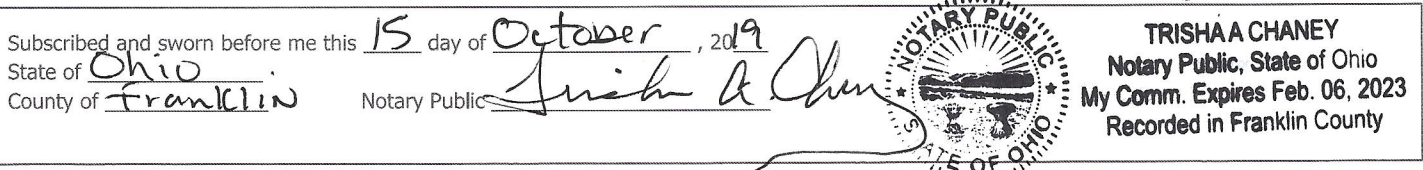 Subscribed and sworn before me this 15 day of October, 2019
State of Ohio.
County of Franklin Notary Public Trisha A. Chaney
NOTARY PUBLIC
STATE OF OHIO
TRISHA A CHANEY
Notary Public, State of Ohio
My Comm. Expires Feb. 06, 2023
Recorded in Franklin County